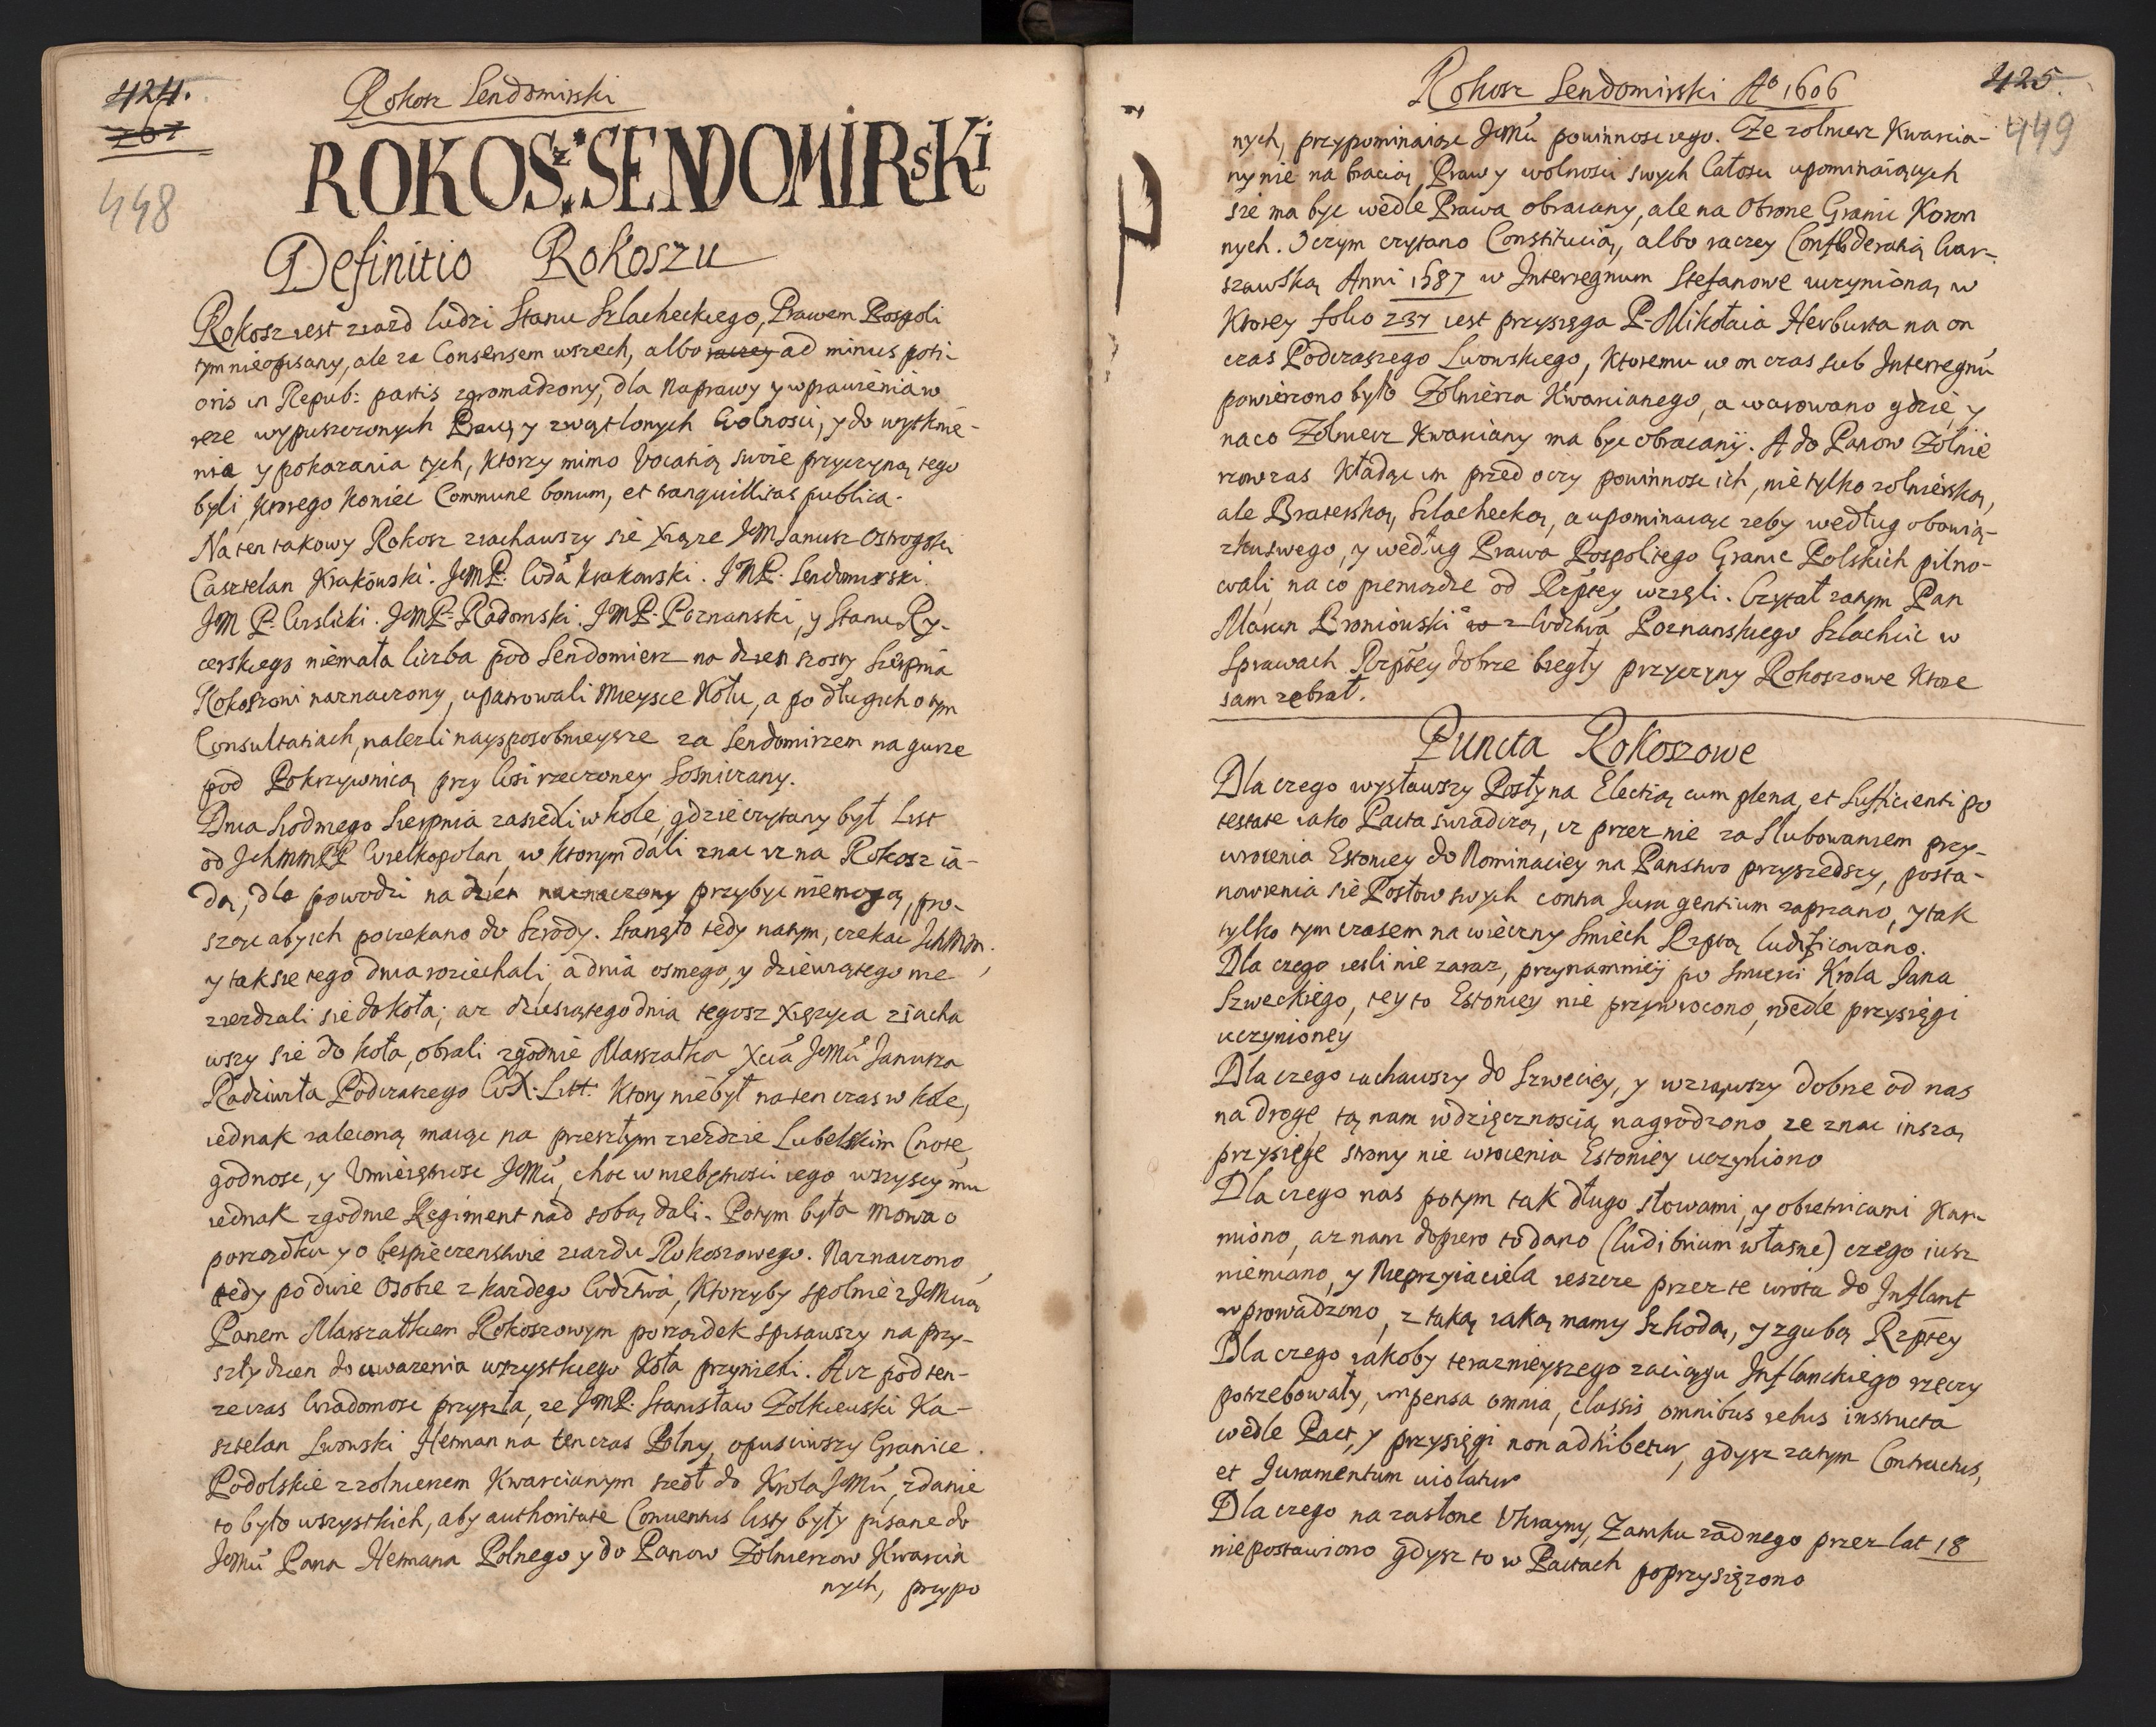 424.
267
448
Rokosz Sendomirski
ROKOSz SENDOMIRsKi
Definitio Rokoszu
Rokosz iest ziazd ludzi Stanu Szlacheckiego, Prawem Pospoli
tym nieopisany, ale za Consensem wszech, albo raczey ad minus poti-
oris in Repub: partis zgromadzony, dla naprawy y wprawienia w
reze wypuszczonych Praw, y zwątlonych Wolnosci, y do wytknie-
nia y pokarania tych, ktorzy mimo Vocatią swoie przyczyną tego
byli, ktorego koniec Commune bonum, et tranquillitas publica.
Na ten takowy Rokosz ziachawszy się Xiąze JeM Janusz Ostrogski
Casztelan Krakowski. JeMP. Wdá Krakowski. JMP. Sendomirski.
JeM P. Wislicki. JeMP. Radomski. JMP. Poznanski, y Stanu Ry-
cerskiego niemała liczba pod Sendomierz na dzien szosty Sierpnia
Rokoszowi naznaczony, upatrowali mieysce Kołu, a po długich o tym
Consultatiach, nalezli naysposobnieysze za Sendomirzem na gurze
pod Pokrzywnicą przy Wsi rzeczoney Sosniczany.
Dnia Siodmego Sierpnia zasiedli w kole, gdzie czytany był List
od JchMMPP Wielkopolan, w ktorym dali znac iz na Rokosz ia-
dą, dla powodzi na dzien naznaczony przybyc niemogą, pro-
sząc abyich poczekano do Srzody. Staneło tedy natym, czekac JchMM.
y tak sie tego dnia roziechali, a dnia osmego, y dziewiątego nie
ziezdzali sie do koła; az dziesiątego dnia tegosz Xięzyca ziacha
wszy sie do koła, obrali zgodnie Marszałka Xcia JeMu Janusza
Radziwiła Podczaszego WX. Litt. ktory niebył naten czas w kole,
iednak zaleconą maiąc na przeszłym ziezdzie Lubelskim Cnotę
godnosc, y Umieiętnosc JeMu, choc w niebytnosci iego wszyscy mu
iednak zgodnie Regiment nad sobą dali. Potym była mowa o
porządku y o bespieczenstwie ziazdu Rokoszowego. Naznaczono
tedy po dwie Osobie z kazdego Wdztwa, Ktorzyby spolnie z JeMcią
Panem Marszałkiem Rokoszowym porządek spisawszy na przy-
szły dzien do uwazenia wszystkiego Koła przyniesli. A iz pod ten-
ze czas Wiadomosc przyszła, ze JmP. Stanisław Zolkiewski Ka-
sztelan Lwowski Hetman na ten czas Polny, opusciwszy Granice
Podolskie z zolnierzem Kwarcianym szedł do Krola JeMu, zdanie
to było wszystkich, aby authoritate Conuentus listy były pisane do
JeMu Pana Hetmana Polnego y do Panow Zolnierzow Kwarcia
nych, przypo
Rokosz Sendomirski Ao 1606
425.
449
nych, przypominaiąc JeMu powinnosc iego. Ze zolnierz Kwarcia-
ny nie na bracią Praw y wolnosci swych Całosci upominaiących
sie ma byc wedle Prawa obracany, ale na Obronę Granic Koron
nych. O czym czytano Constitucią, albo raczey Confoederatią War-
szawską Anni 1587 w Interregnum Stefanowe uczynioną w
Ktorey folio 237 iest przysięga P. Mikołaia Herburta na on
czas Podczaszego Lwowskiego, ktoremu w on czas sub Interregnu
powierzono było Zołnierza Kwarcianego, a warowano gdzie, y
na co Zołnierz Kwarciany ma byc obracany. A do Panow Zołnie
rzow zas kładąc im przed oczy powinnosc ich, nie tylko zolnierską,
ale Braterską, Szlachecką, a upominaiąc zeby według obowią-
zku swego, y według Prawa Pospolitego Granic Polskich pilno-
wali, na co pieniądze od Rzptey wzięli. Czytał zatym Pan
Marcin Broniowski z Wdztwa Poznanskiego Szlachcic w
Sprawach Rzptey dobrze biegły przyczyny Rokoszowe Ktore
sam zebrał.
Puncta Rokoszowe
Dla czego wysławszy Posły na Electią cum plena, et sufficienti po
testate iako Pacta swiadczą, iz przez nie za slubowaniem przy-
wrocenia Estoniey do Nominaciey na Panstwo przyszedszy, posta-
nowienia sie Posłow swych contra Jura gentium zaprzano, y tak
tylko tym czasem na wieczny smiech Rzptą ludificowano.
Dla czego iesli nie zaraz, przynamniey po smierci Krola Jana
Szweckiego, tey to Estoniey nie przywrocono, wedle przysięgi
uczynioney
Dla czego iachawszy do Szweciey, y wziąwszy dobrze od nas
na drogę, tą nam wdzięcznoscią nagrodzono, ze znac inszą
przysięgę strony nie wrocenia Estoniey uczyniono
Dla czego nas potym tak długo słowami, y obietnicami Kar-
miono, az nam dopiero to dano (ludibrium własne) czego iusz
niemiano, y Nieprzyiaciela ieszcze przez te wrota do Inflant
wprowadzono, z taką iaką mamy Szkodą, y zgubą Rzptey
Dla czego iakoby terazniejszego zaciągu Inflanckiego rzeczy
potrzebowały, impensa omnia, classis omnibus rebus instructa
wedle Pact, y przysięgi non adhibetur, gdysz zatym Contractus,
et Juramentum uiolatur
Dla czego na zasłonę Ukrainy, Zamku zadnego przez lat 18
niepostawiono gdysz to w Pactach poprzysiężono